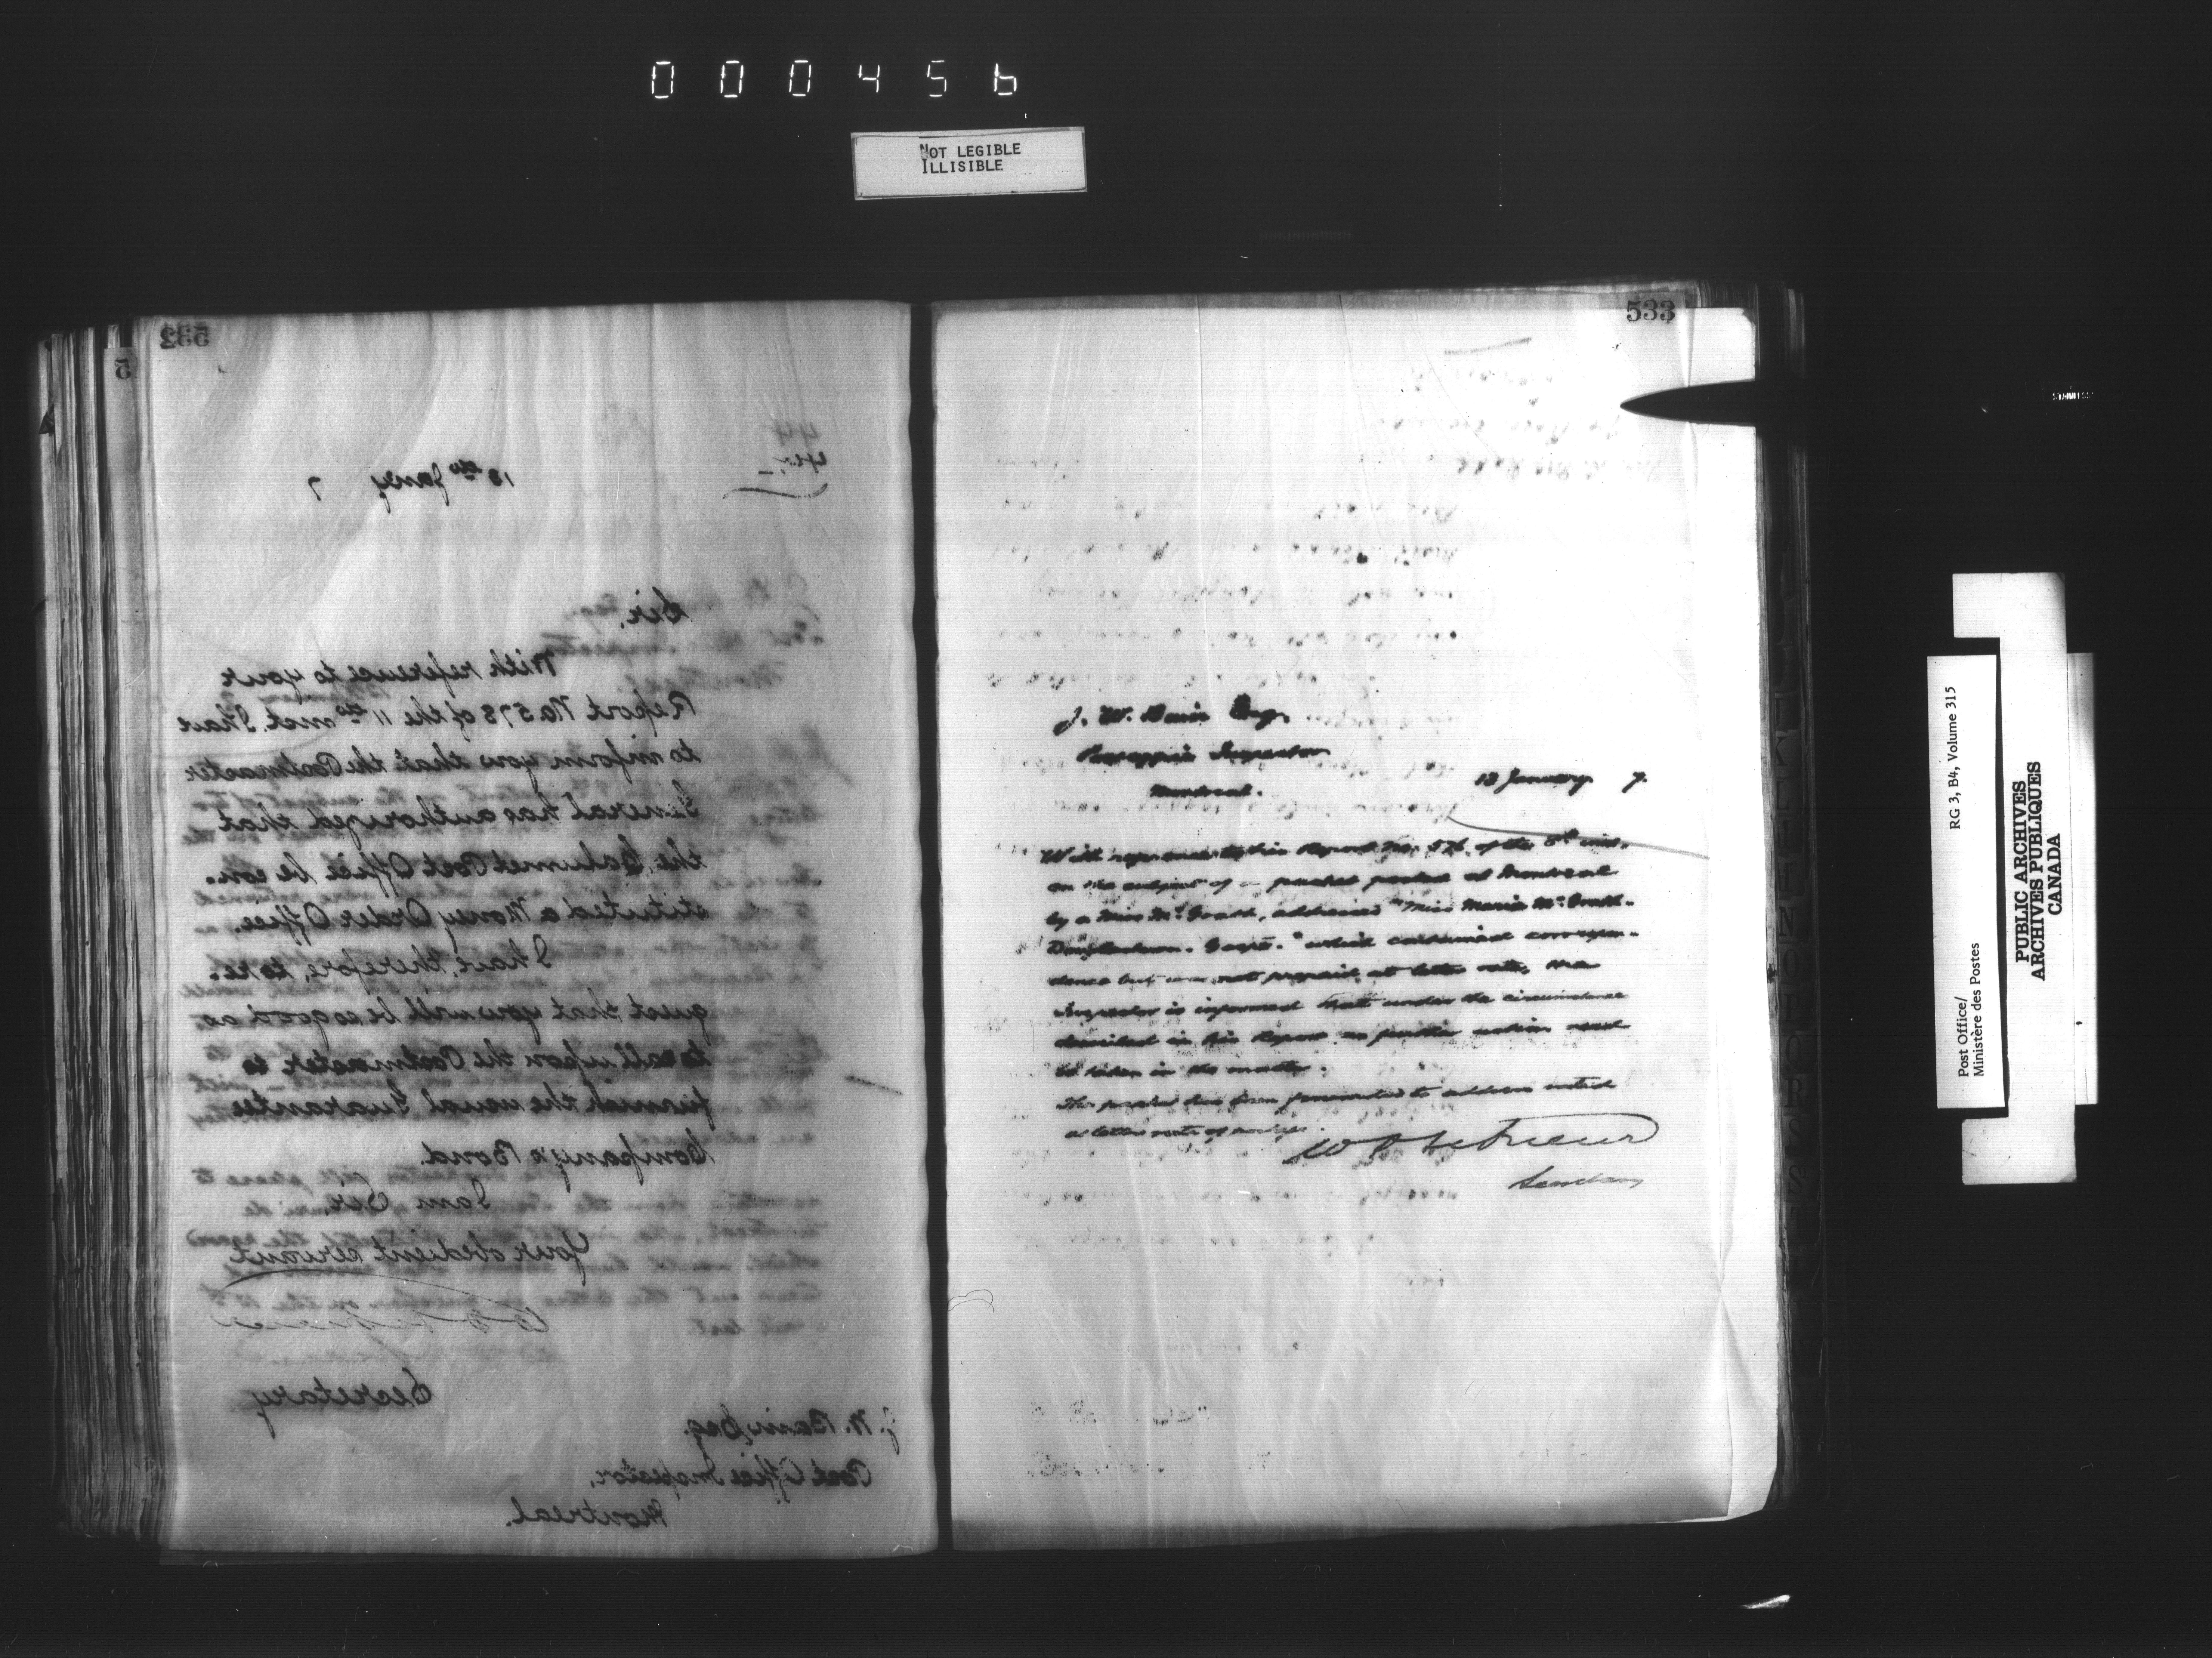 000456
NOT LEGIBLE
ILLISIBLE
533
44
18th Jany 7
Sir,
With reference to your
Report No 578 of the 11th inst. I have
to inform you that the Postmaster
General has authorized that
the Calumet Post Office be con-
stituted a Money Order Office.
I have, therefore, to re-
quest that you will be so good as
to call upon the Postmaster to
furnish the usual Guarantee
Company's Bond.
I am Sir,
Your obedient servant
Secretary
J. W. Bain Esq.
Post Office Inspector,
Montreal.
533
J. W. Bain Esq.
Post Office Inspector
Montreal.
18 January 7.
With reference to his Report No. 576 of the 8th inst.
on the subject of a packet posted at Montreal
by a Miss McGrath, addressed "Miss Maria McGrath.
Douglastown. Gaspé." which contained correspon-
dence but was not prepaid at letter rate, the
Inspector is informed that under the circumstances
described in his Report no further action need
be taken in the matter.
The packet has been forwarded to address noted
at letter rate of postage.
Secretary
Post Office/
Ministère des Postes
RG 3, B4, Volume 315
PUBLIC ARCHIVES
ARCHIVES PUBLIQUES
CANADA